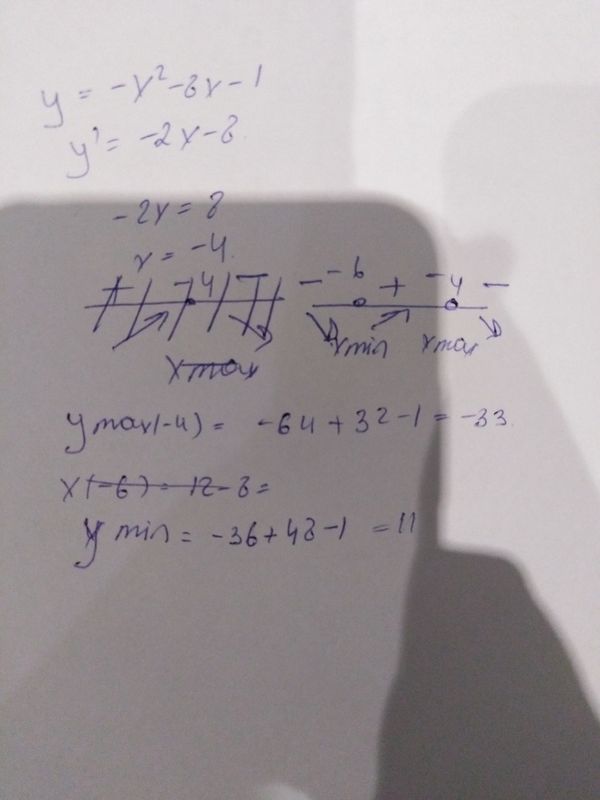 y = -x² - 8x - 1
y' = -2x - 8
-2x = 8
x = -4.
+ -4 - - -6 + -4 -
xmax xmin xmax
ymax(-4) = -64 + 32 - 1 = -33.
x(-6) = 12 - 8 =
y min = -36 + 48 - 1 = 11